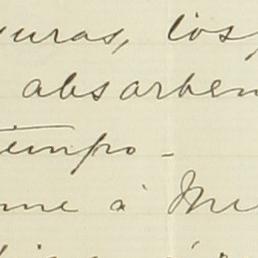 uras, los
absorben
tempo -
me à Me